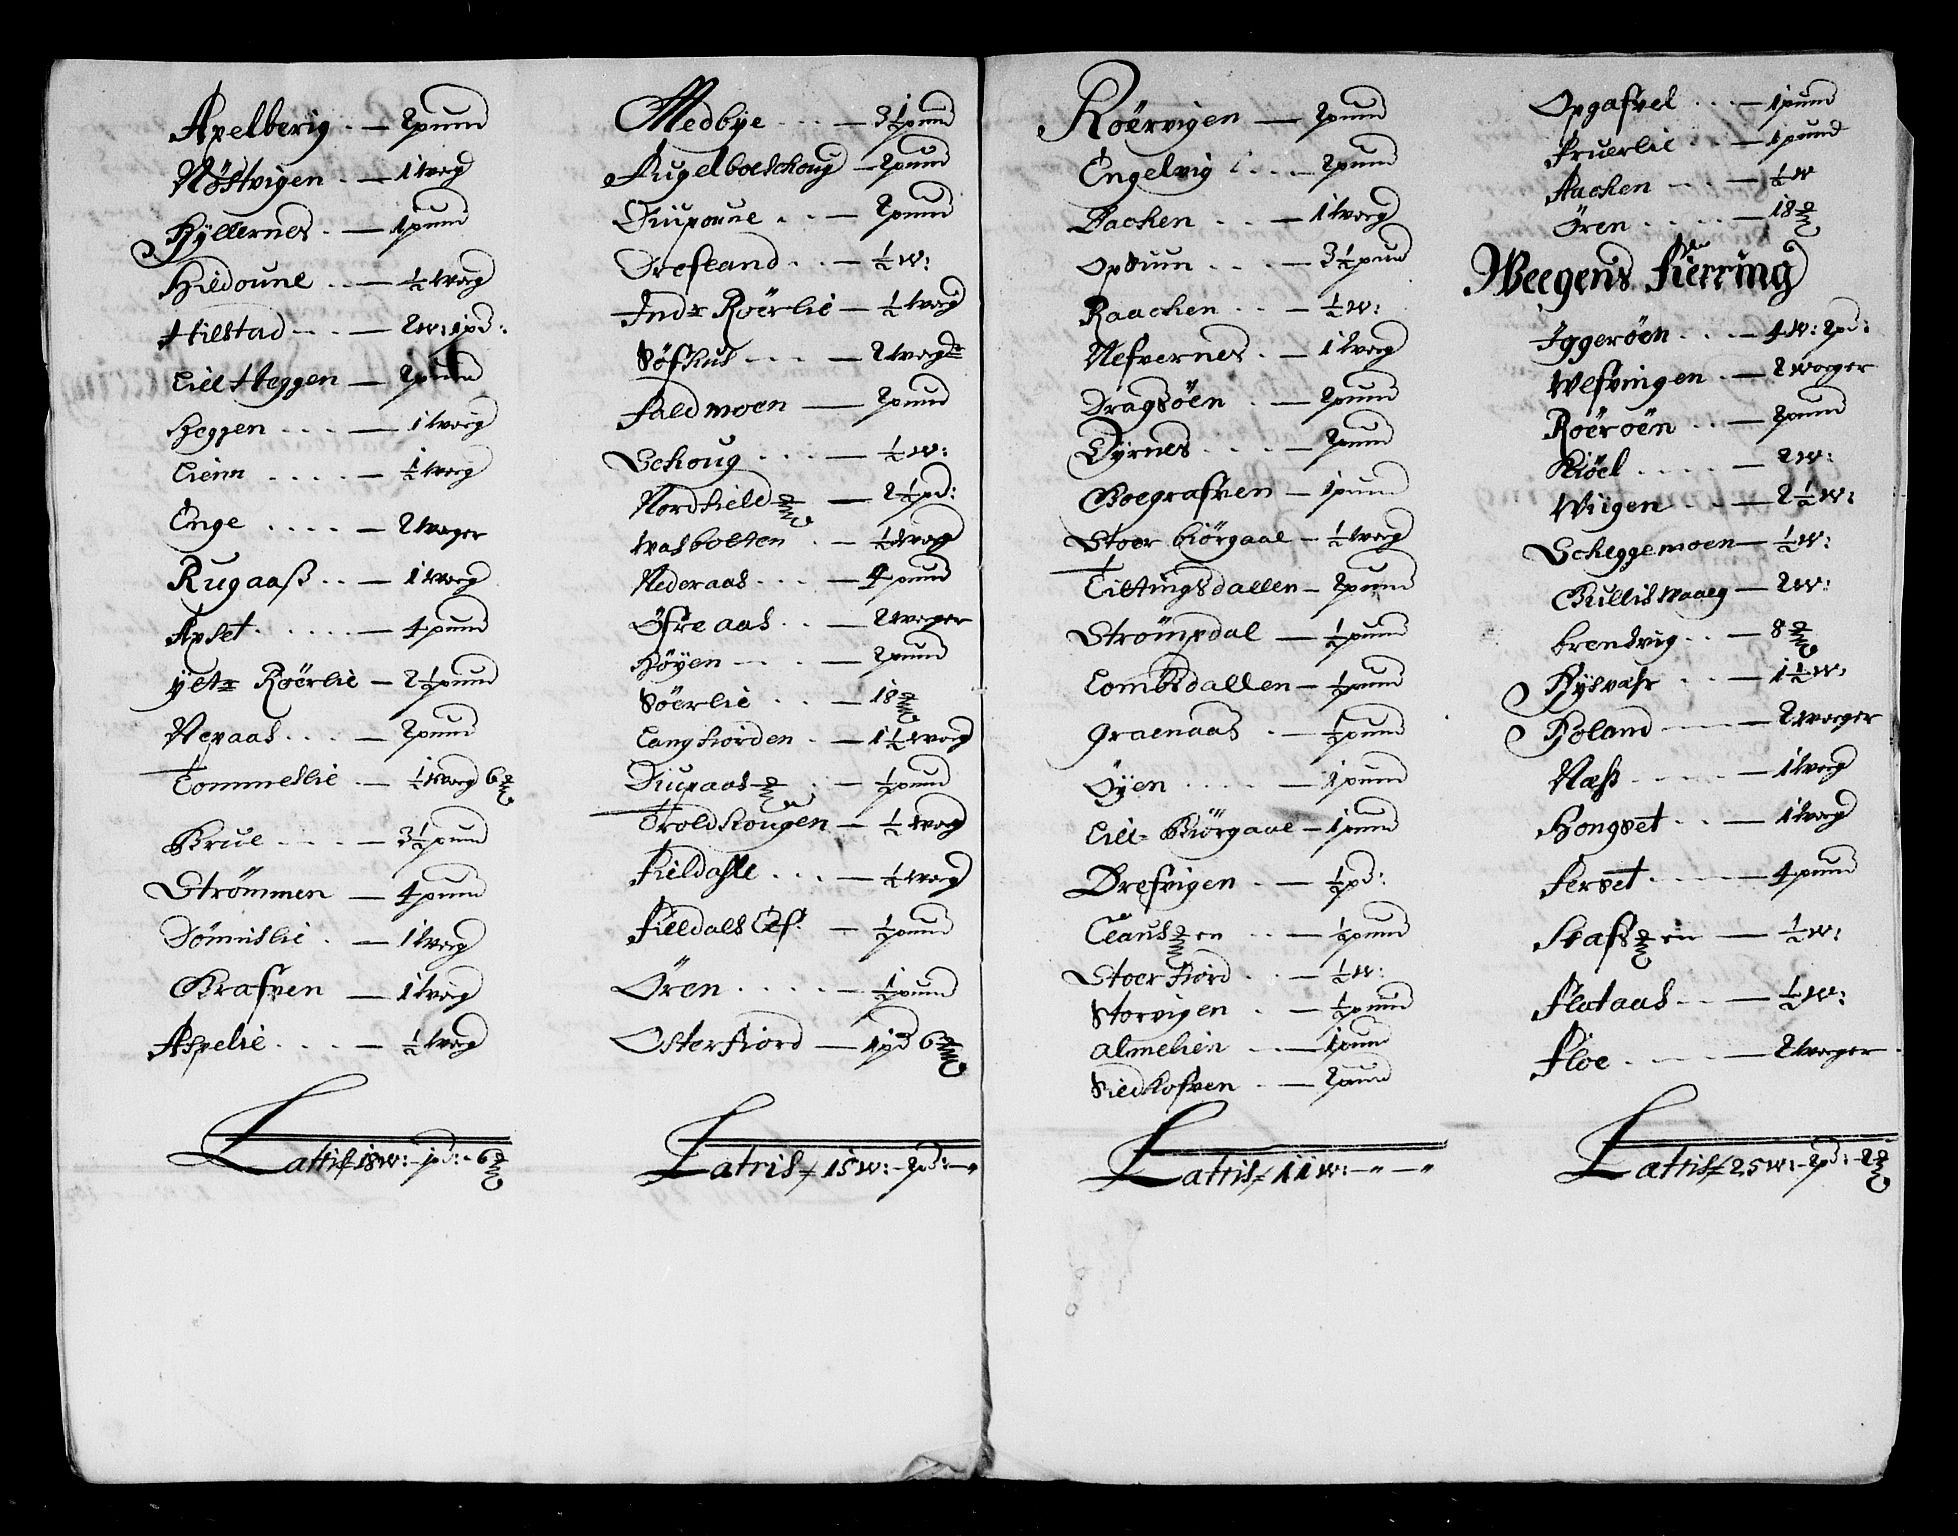 Axelberig - 2 pund
Nöstvigen - 1 woeg
Hyllernes - 1 pund
Hildoune - ½ woeg
Hilstad - 2 w: 1 pd:
Liel Heggen - 2 pund
Heggen - 1 woeg
Lienn - ½ woeg
Enge - 2 woger
Rugaaß - 1 woeg
Axset - 4 pund
ÿltr Röerlie - 2½ pund
Nepaas - 2 pund
Tommeslie - ½ woeg 6
Brue - 3½ pund
Strömmen - 4 pund
Dönnislie - 1 woeg
Grafven - 1 woeg
Aspelie - ½ woeg
Lattis 18 w: - 1 pd: - 6
Medbÿe - 3½ pund
Fugelboeschoug - 2 pund
Diupoune - 2 pund
Drefland - ½ w:
Indr Röerlie - ½ woeg
Söfhus - 2 wogr
Faldmoen - 2 pund
Schoug - ½ w:
Nordfield - 2½ pd:
Wasbotten - ½ woeg
Nederaas - 4 pund
Öfre aas - 2 woger
Höÿen - 2 pund
Söerlie - 18
Langfiorden - 1½ woeg
Diupaas - ½ pund
Troldskougen - ½ woeg
Fieldahll - ½ woeg
Fieldals Elf - ½ pund
Ören - ½ pund
Osterfiord - 1 pd 6
Latris 15 w: - 2 pd: - "
Röervigen - 2 pund
Engelvig - 2 pund
Bachen - 1 woeg
Opsum - 3½ pund
Raachen - ½ w:
Nefvernes - 1 woeg
Dragsöen - 2 pund
Dyrnes - 2 pund
Boegrafven - 1 pund
Stoer Biörgaal - ½ woeg
Tiltingsdallen - 2 pund
Strömsdal - ½ pund
Lombsdallen - ½ pund
Graenaas - ½ pund
Öÿen - 1 pund
Lill- Biörgaal - 1 pund
Drefvigen - ½ pd:
Claus en - ½ pund
Stoer Fiord - ½ w:
Storvigen - ½ pund
Almelien - 1 pund
Siedhofven - 2 pund
Lattis 11 w: - " - "
Opgafvel - 1 pund
Fruerlie - 1 pund
Aachen - ½ w
Ören - 18
Weegens Fierring
Iggeröen - 4 w: 2 pd:
Wefvingen - 2 woeger
Röeröen - 2 pund
Kiöel - 2 w:
Wiigen - 2½ w:
Scheggemoen - ½ w:
Gulliswaaeg - 2 w:
Brendvig - 8
Rÿsvahr - 1½ w:
Holand - 2 woeger
Næss - 1 woeg
Hongset - 1 woeg
Ferset - 4 pund
Stafs en - ½ w:
Flotaas - ½ w:
Floe - 2 woeger
Lattis 25 w: - 2 pd: - 2